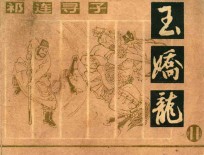 祁连寻子
玉嬌龍
11